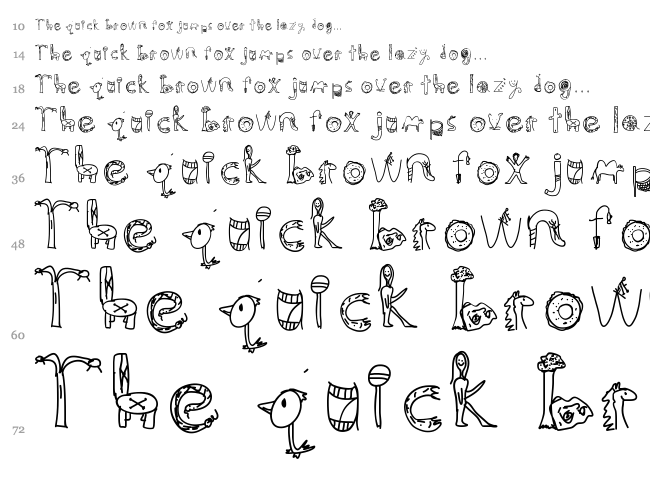 10 The quick brown fox jumps over the lazy dog...
14 The quick brown fox jumps over the lazy dog...
18 The quick brown fox jumps over the lazy dog...
24 The quick brown fox jumps over the laz
36 The quick brown fox jump
48 The quick brown fo
60 The quick brow
72 The quick br